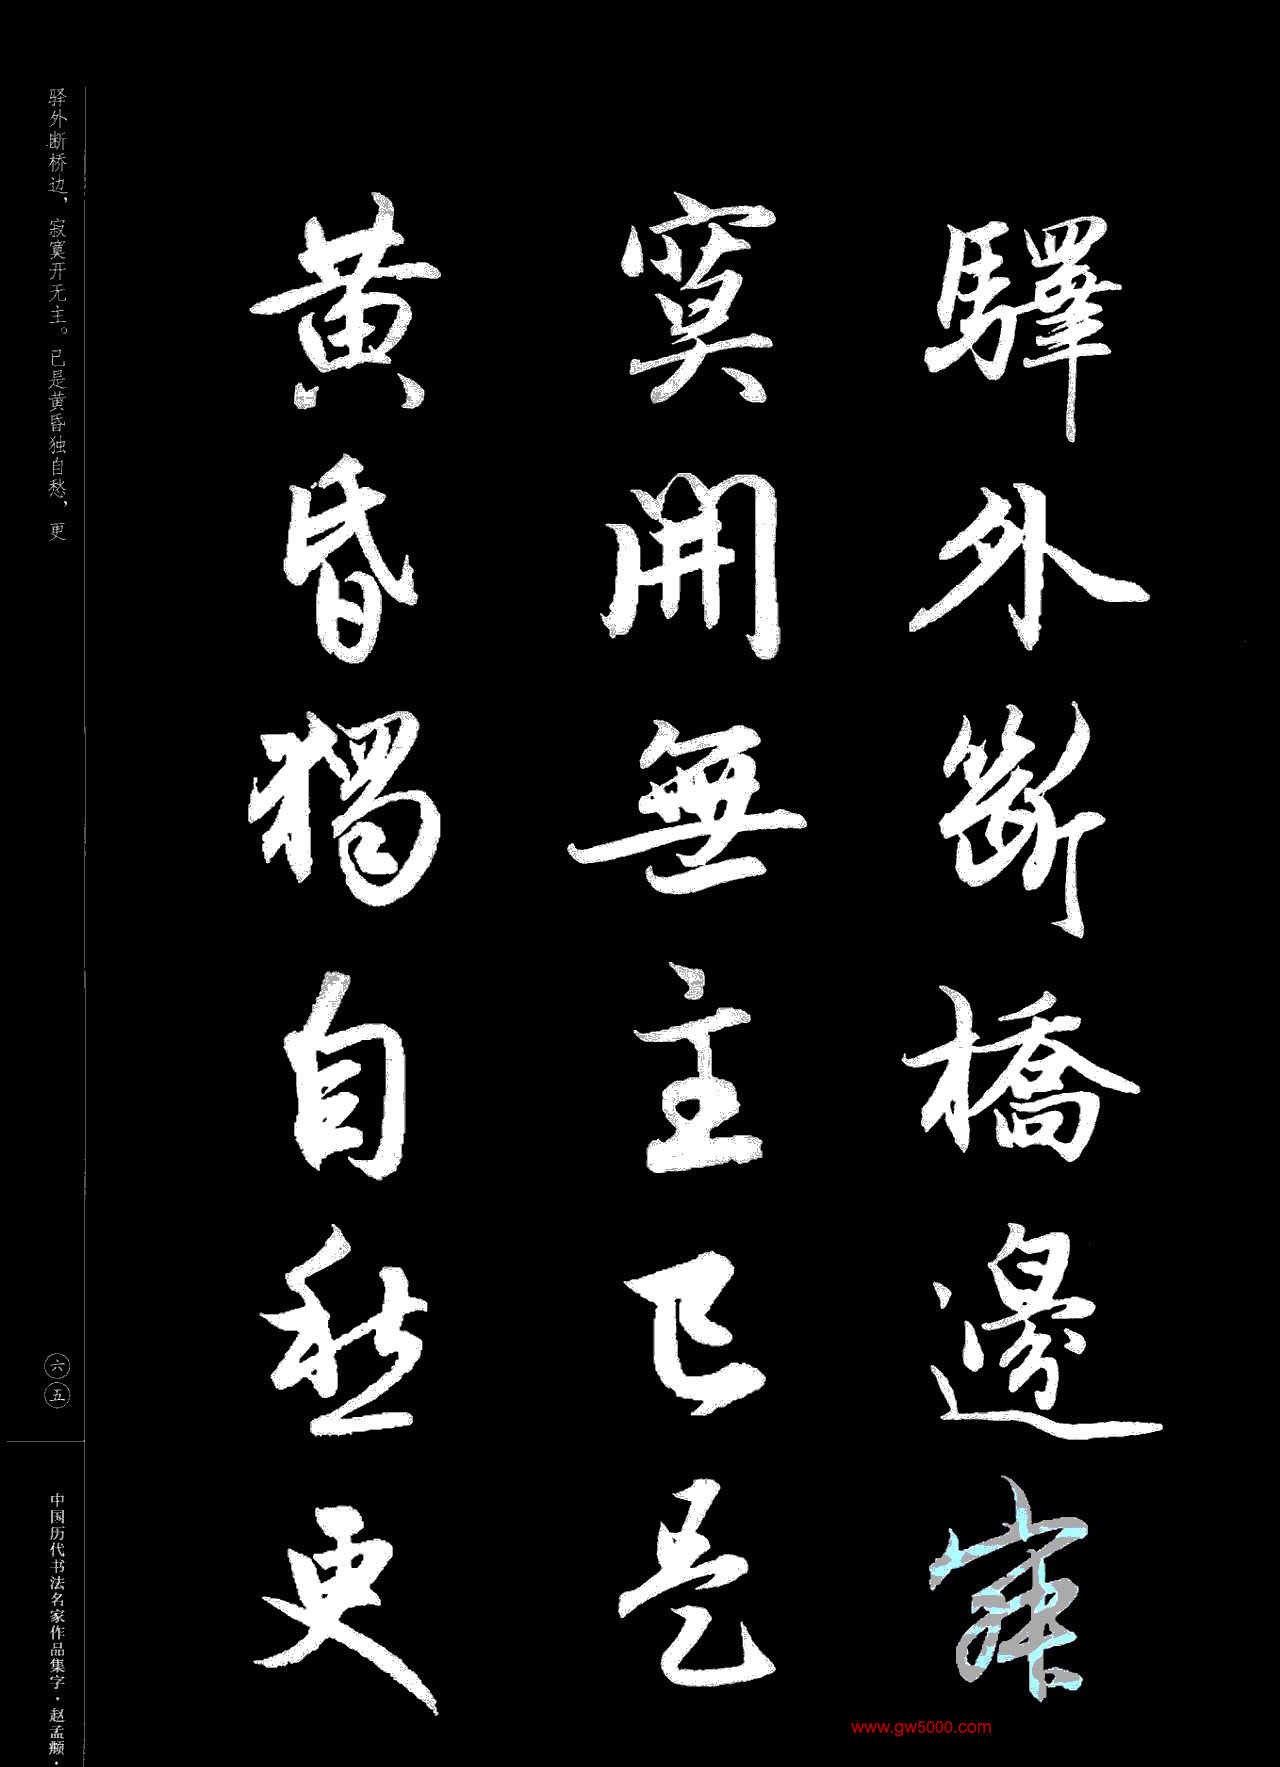 驛外斷橋邊寂
寞開無主已是
黄昏獨自愁更
驿外断桥边，寂寞开无主。已是黄昏独自愁，更
六五
中国历代书法名家作品集字·赵孟頫·
www.gw5000.com